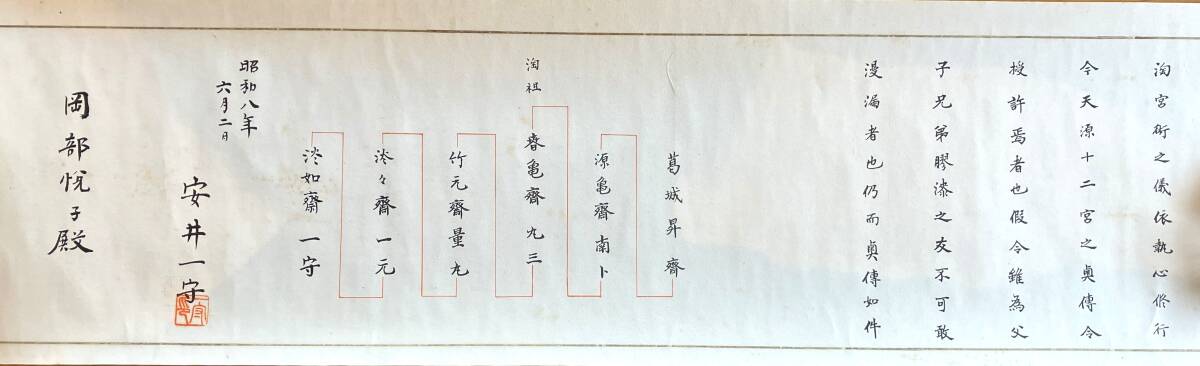 淘宮術之儀依執心修行
今天源十二宮之奥傳令
授許焉者也假令雖為父
子兄弟膠漆之友不可敢
漫漏者也仍而奥傳如件
葛城昇齋
源亀齋南卜
淘祖
春亀齋丸三
竹元齋量丸
淡々齋一元
淡如齋一守
昭和八年
六月二日
安井一守
岡部悦子殿